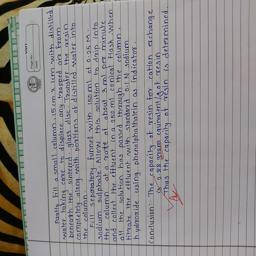 Firstly, Fill a small column, 15 cm x 1 cm with distilled
water taking care to displace any trapped air from
beneath the sintered glass disc. Transfer the resin
completely along with portions of distilled water into
the column.
Fill separatory funnel with 250 mL of 0.25 M
sodium sulphate. Allow this solution to drop into
the column at a rate of about 2 mL per minute
and collect the effluent in a 500 mL conical flask. When
all the solution has passed through the column,
titrate the effluent with standard 0.1 M sodium
hydroxide using phenolphthalein as indicator.
Conclusion: The capacity of resin for cation exchange
is gram equivalent/g of resin
Thus the capacity of resin is determined.